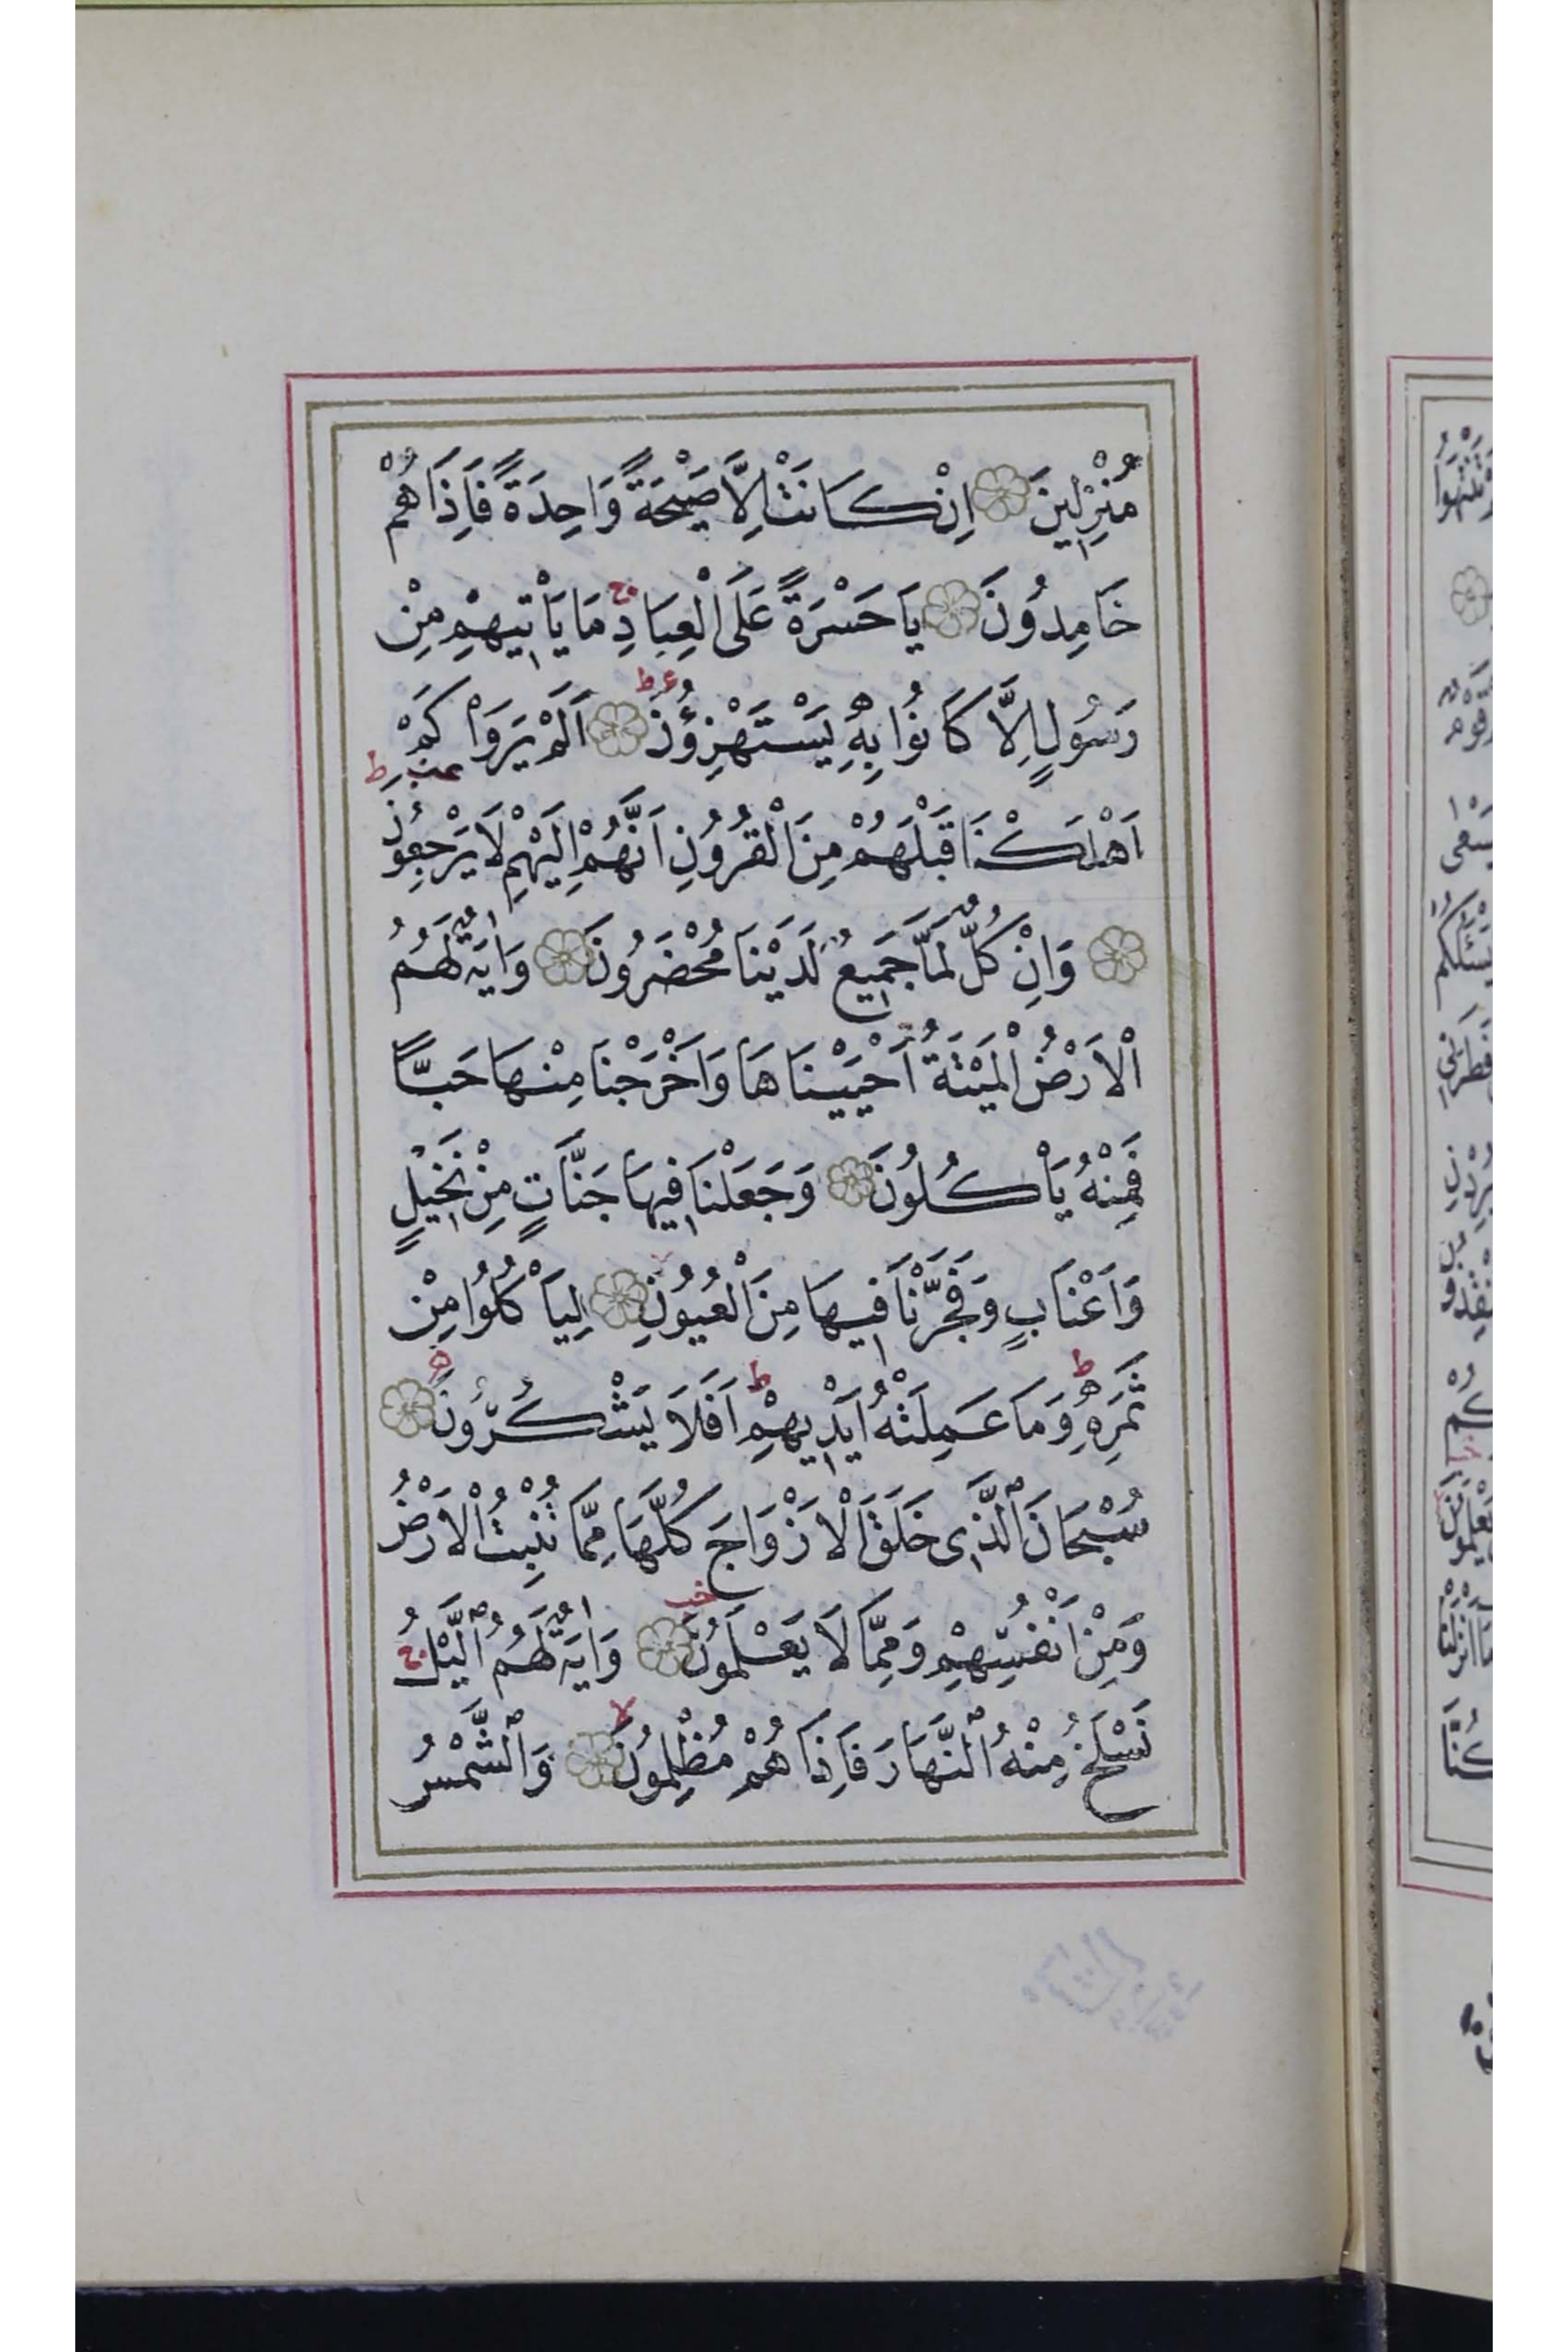 مُنْزِلِينَ اِنْ كَانَتْ اِلَّا صَيْحَةً وَاحِدَةً فَاِذَا هُمْ
خَامِدُونَ يَا حَسْرَةً عَلَى الْعِبَادِ ج مَا يَأْتِيهِمْ مِنْ
رَسُولٍ اِلَّا كَانُوا بِهِ يَسْتَهْزِؤُنَ اَلَمْ يَرَوْا كَمْ
اَهْلَكْنَا قَبْلَهُمْ مِنَ الْقُرُونِ اَنَّهُمْ اِلَيْهِمْ لَا يَرْجِعُونَ
وَاِنْ كُلٌّ لَمَّا جَمِيعٌ لَدَيْنَا مُحْضَرُونَ وَاٰيَةٌ لَهُمُ
الْاَرْضُ الْمَيْتَةُ اَحْيَيْنَاهَا وَاَخْرَجْنَا مِنْهَا حَبًّا
فَمِنْهُ يَأْكُلُونَ وَجَعَلْنَا فِيهَا جَنَّاتٍ مِنْ نَخِيلٍ
وَاَعْنَابٍ وَفَجَّرْنَا فِيهَا مِنَ الْعُيُونِ لِيَأْكُلُوا مِنْ
ثَمَرِهِ ط وَمَا عَمِلَتْهُ اَيْدِيهِمْ ط اَفَلَا يَشْكُرُونَ
سُبْحَانَ الَّذِى خَلَقَ الْاَزْوَاجَ كُلَّهَا مِمَّا تُنْبِتُ الْاَرْضُ
وَمِنْ اَنْفُسِهِمْ وَمِمَّا لَا يَعْلَمُونَ وَاٰيَةٌ لَهُمُ الَّيْلُ ج
نَسْلَخُ مِنْهُ النَّهَارَ فَاِذَا هُمْ مُظْلِمُونَ لا وَالشَّمْسُ